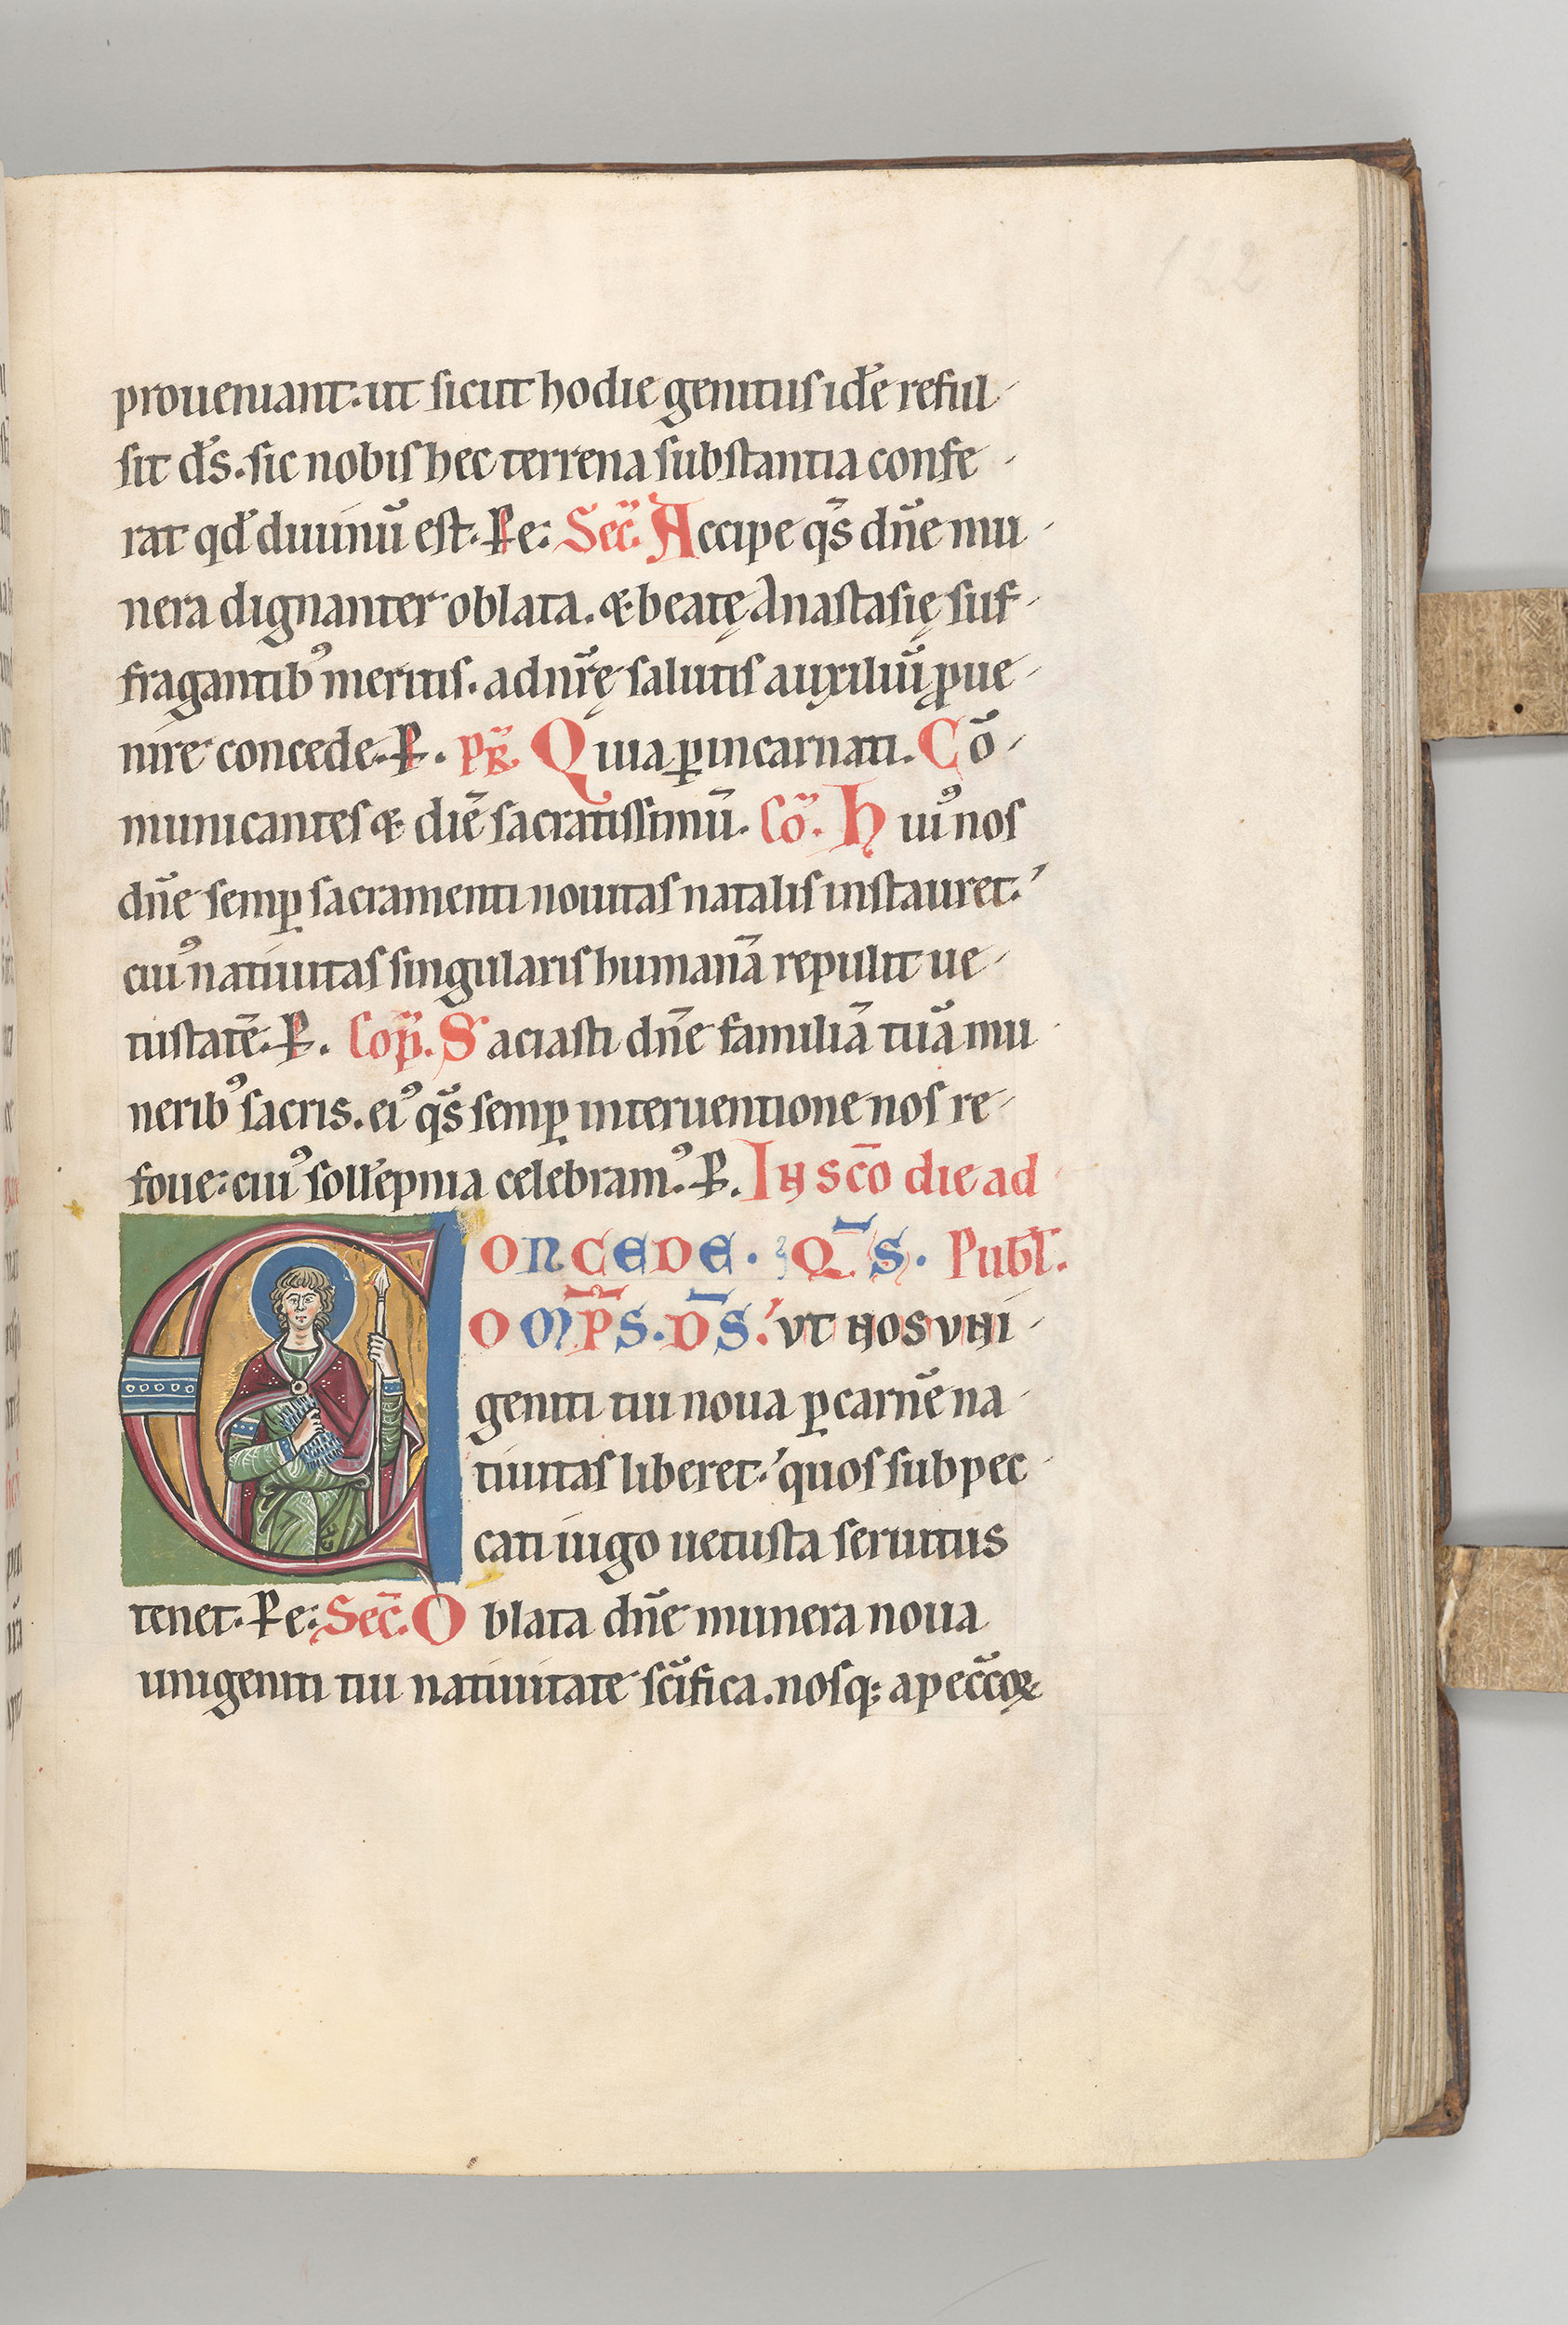 122
proueniant. ut sicut hodie genitus id̄e reful-
sit d̄s. sic nobis hec terrena substantia confe-
rat qd̄ diuinū est. Ꝑe: Sec̄. Accipe qs̄ dn̄e mu-
nera dignanter oblata. & beatę Anastasię suf-
fragantibꝰ meritis. ad nr̄ę salutis auxiliū ꝓue-
nire concede. Ꝑ. P̄R. Quia ꝑ incarnati. Cō-
municantes & diē sacratissimū. Cō. Huiꝰ nos
dn̄e semꝑ sacramenti nouitas natalis instauret.
cuiꝰ natiuitas singularis humanā repulit ue-
tustatē. Ꝑ. Cōp. Saciasti dn̄e familiā tuā mu-
neribꝰ sacris. eiꝰ qs̄ semꝑ interuentione nos re-
foue: cuiꝰ soll̄epnia celebramꝰ. Ꝑ. IN sc̄o die ad
CONCEDE. Q̄S. Publ̄.
OMP̄S. D̄S. VT NOS VNI-
geniti tui noua ꝑ carnē na-
tiuitas liberet. quos sub pec-
cati iugo uetusta seruitus
tenet. Ꝑe: Sec̄. Oblata dn̄e munera noua
unigeniti tui natiuitate sc̄ifica. nosq; a pecc̄oꝝ